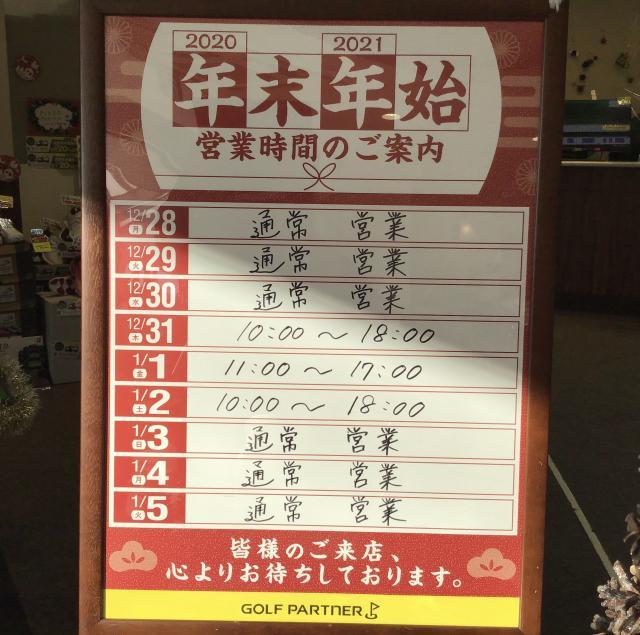 2020 2021
年末年始
営業時間のご案内
12/28 月 通常 営業
12/29 火 通常 営業
12/30 水 通常 営業
12/31 木 10:00 ~ 18:00
1/1 金 11:00 ~ 17:00
1/2 土 10:00 ~ 18:00
1/3 日 通常 営業
1/4 月 通常 営業
1/5 火 通常 営業
皆様のご来店、
心よりお待ちしております。
GOLF PARTNER